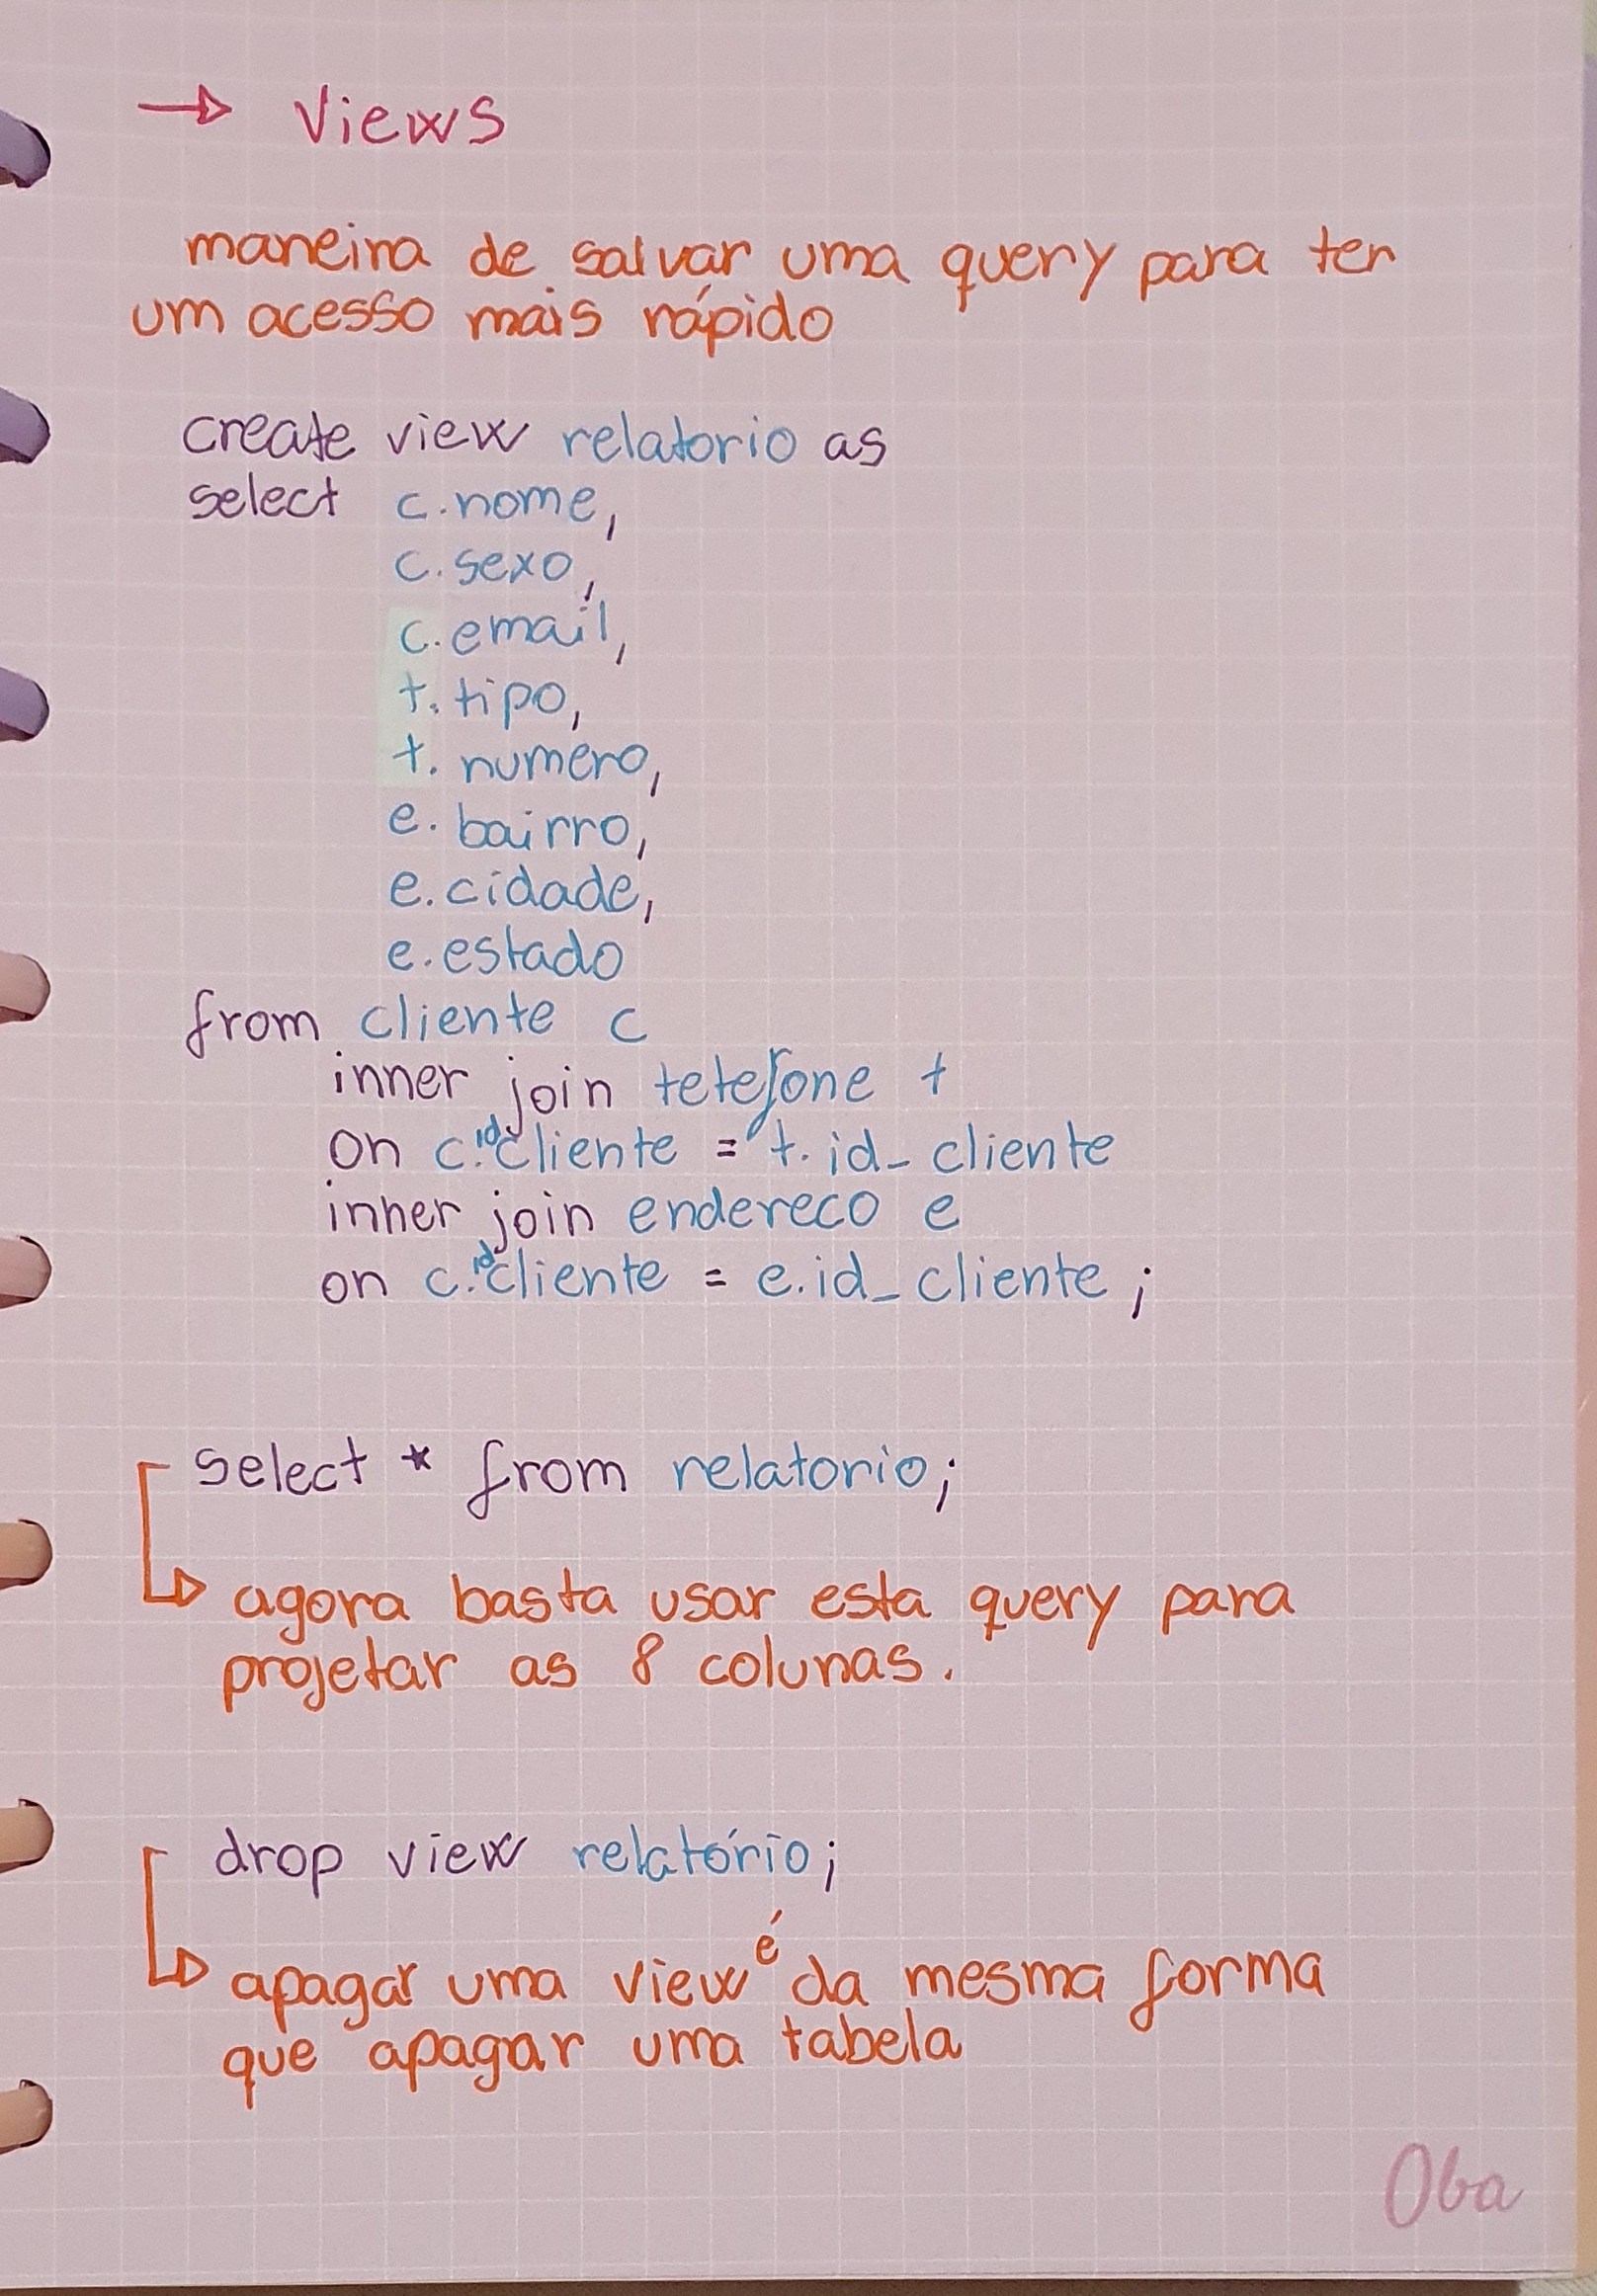 → Views
maneira de salvar uma query para ter
um acesso mais rápido
create view relatorio as
select c.nome,
c.sexo,
c.email,
t.tipo,
t.numero,
e.bairro,
e.cidade,
e.estado
from cliente c
inner join telefone t
on c.idcliente = t.id_cliente
inner join endereco e
on c.idcliente = e.id_cliente;
select * from relatorio;
agora basta usar esta query para
projetar as 8 colunas.
drop view relatório;
apagar uma view é da mesma forma
que apagar uma tabela
Oba